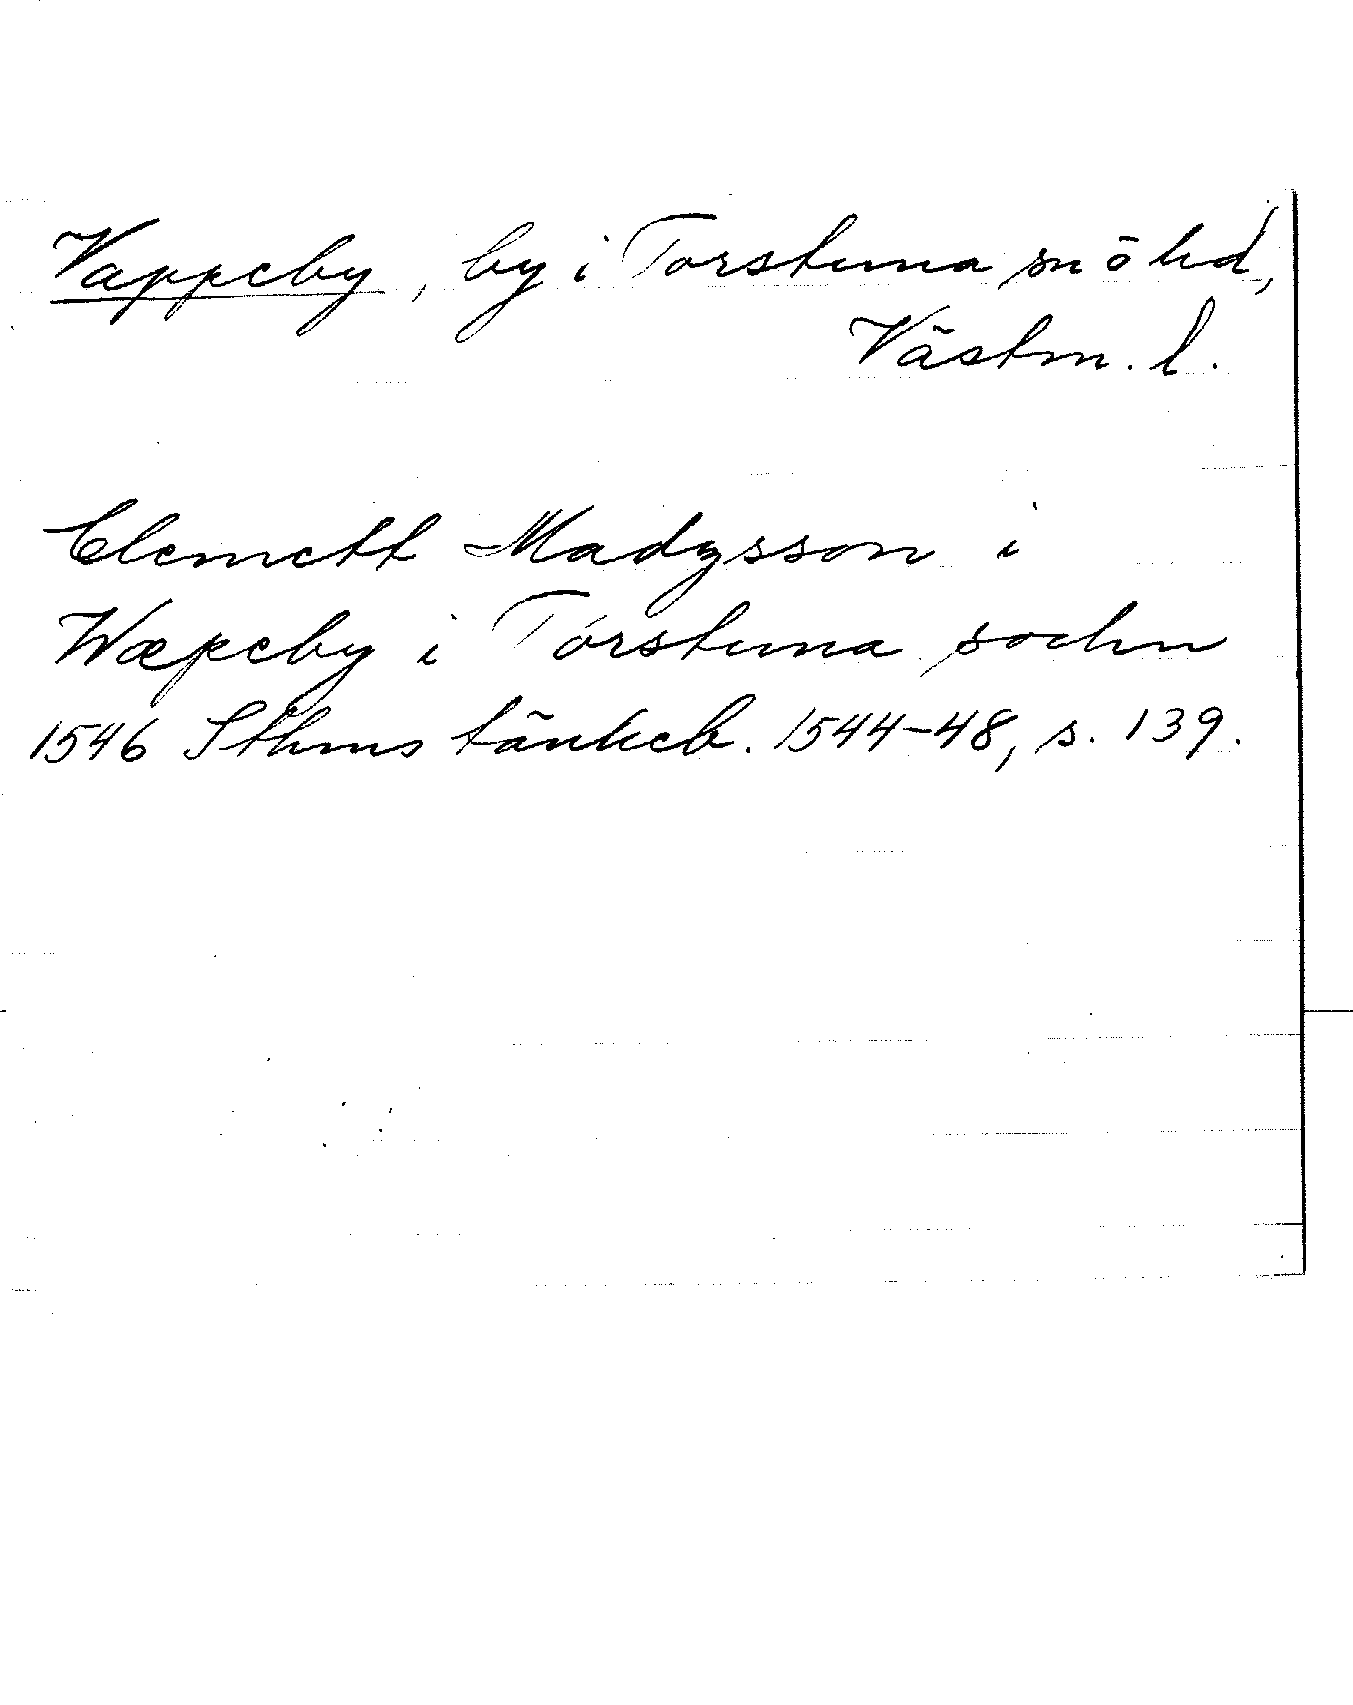 Vappeby, by i Torstuna sn o hd,
Västm. l.
Clemett Madzsson i
Wæpeby i Torstuna sochn
1546 Sthms tänkeb. 1544-48, s. 139.